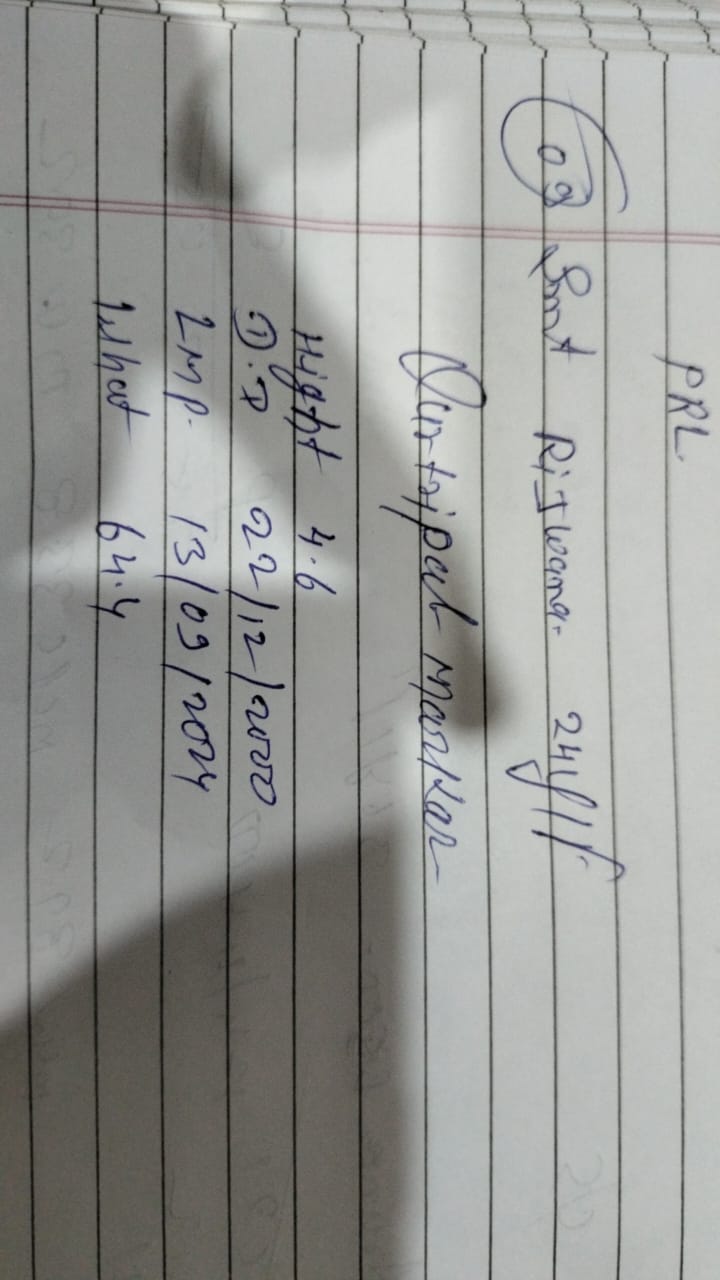 PRL.
09 Smt Rijwana. 24y/F
Quntripal markar
Hight 4.6
D.B 22/12/2000
LMP. 13/09/2024
What 64.4